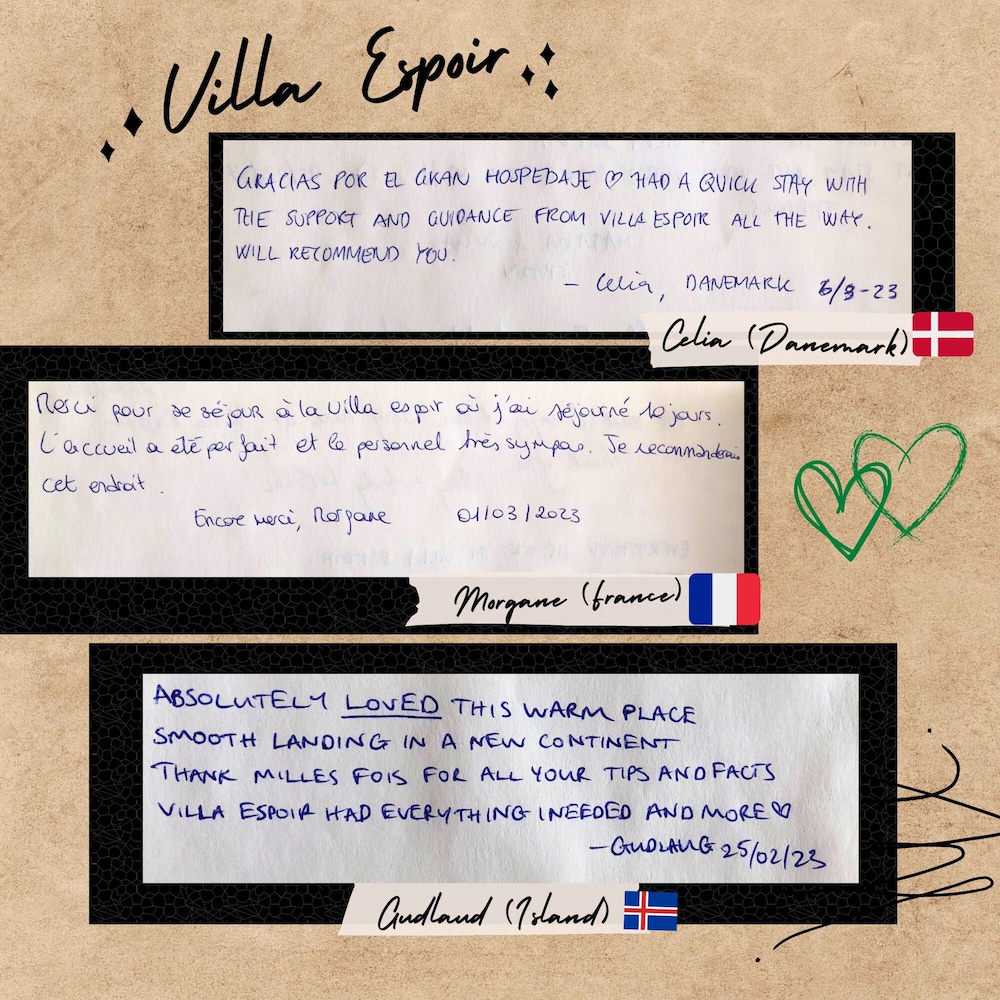 Villa Espoir
GRACIAS POR EL GRAN HOSPEDAJE ♡ HAD A QUICK STAY WITH
THE SUPPORT AND GUIDANCE FROM VILLA ESPOIR ALL THE WAY.
WILL RECOMMEND YOU.
- Celia, DANEMARK 6/3-23
Celia (Danemark)
Merci pour se séjour à la villa espoir où j'ai séjourné 10 jours.
L'accueil a été parfait et le personnel très sympas. Je recommanderais
cet endroit.
Encore merci, Morgane 01/03/2023
Morgane (france)
ABSOLUTELY LOVED THIS WARM PLACE
SMOOTH LANDING IN A NEW CONTINENT
THANK MILLES FOIS FOR ALL YOUR TIPS AND FACTS
VILLA ESPOIR HAD EVERYTHING I NEEDED AND MORE ♡
-GUDLAUG 25/02/23
Gudlaud (Island)